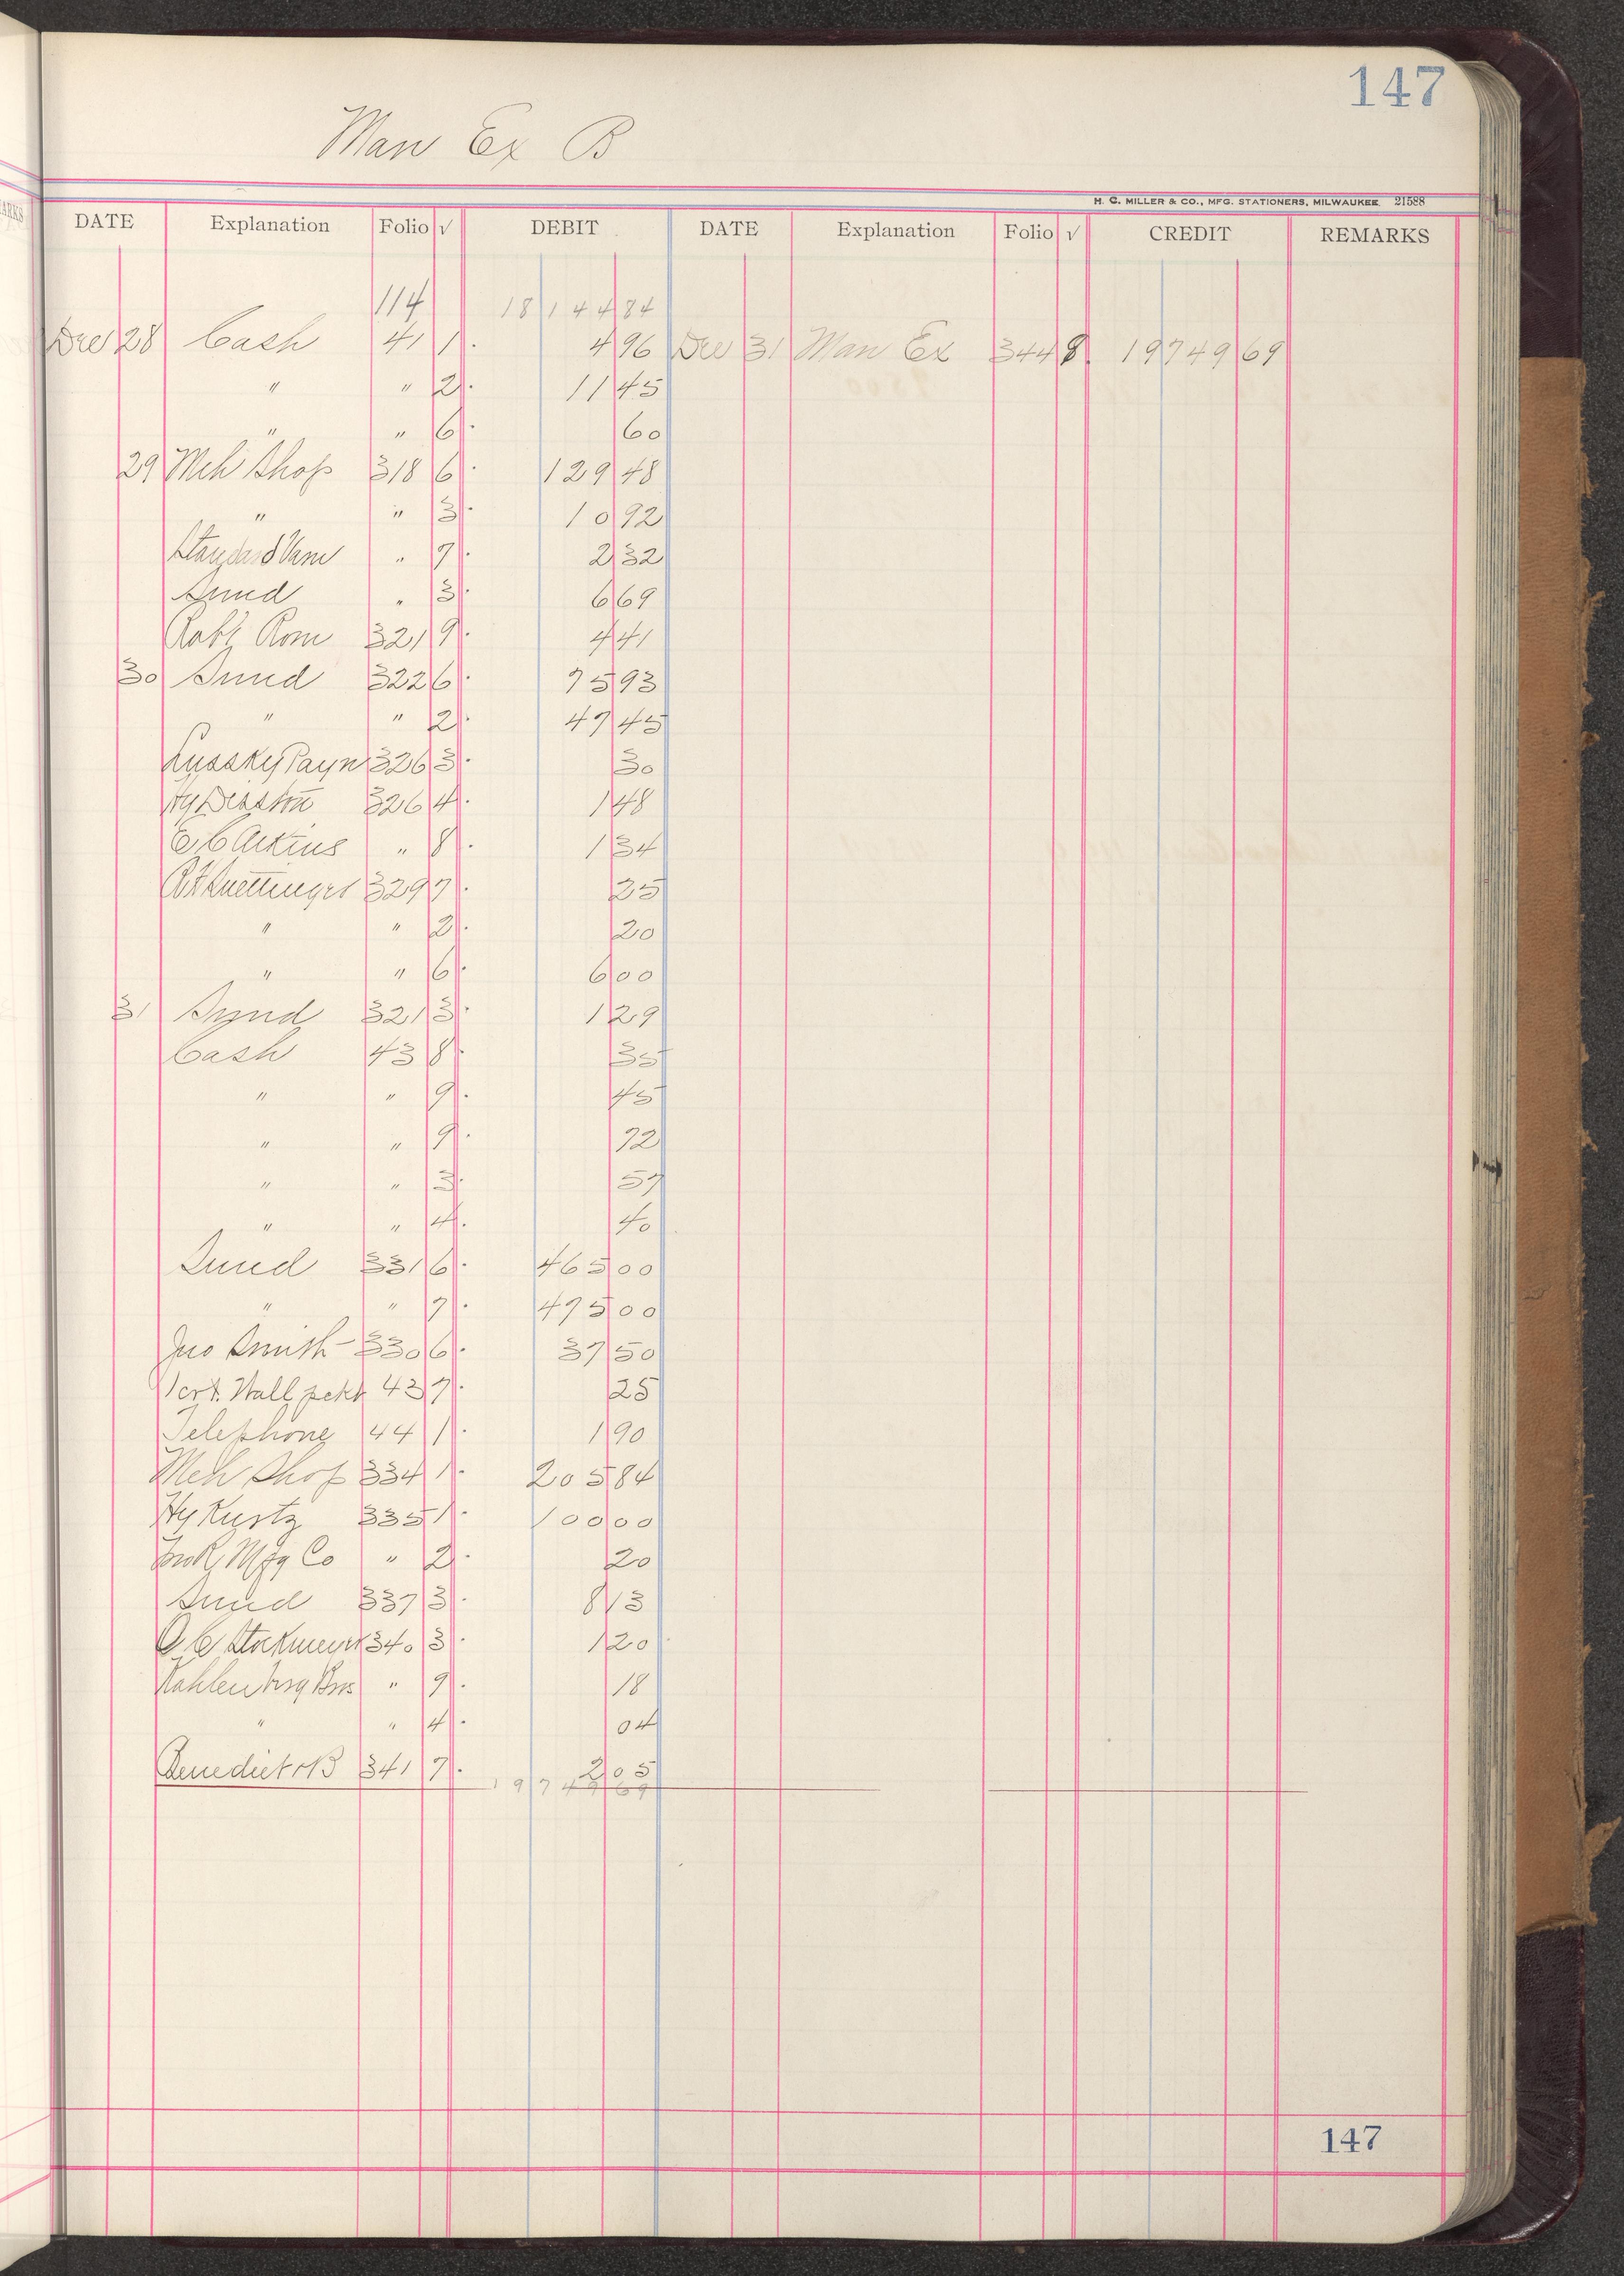 147
Man Ex B
H. C. MILLER & CO., MFG. STATIONERS, MILWAUKEE 21588
DATE Explanation Folio √ DEBIT DATE Explanation Folio √ CREDIT REMARKS
114 18144 84
Dec 28 Cash 41 1 4 96 Dec 31 Man Ex 344 8 19749 69
" " 2 11 45
" " 6 60
29 Mch Shop 318 6 129 48
" " 3 10 92
Standard Varn " 7 2 32
Sund " 3 6 69
Robt Rom 321 9 4 41
30 Sund 322 6 75 93
" " 2 47 45
Lussky Payn 326 3 30
Hy Disston 326 4 1 48
E C Atkins " 8 1 34
329 7 25
" " 2 20
" " 6 6 00
31 Sund 321 3 1 29
Cash 43 8 35
" " 9 45
" " 9 72
" " 3 57
" " 4 40
Sund 331 6 465 00
" " 7 475 00
Jno Smith 330 6 37 50
Wall pckt 43 7 25
Telephone 44 1 1 90
Mch Shop 334 1 205 84
Hy Kurtz 335 1 100 00
Mfg Co " 2 20
Sund 337 3 8 13
O C Stockmeyer 340 3 1 20
Kahlenberg Bros " 9 18
" " 4 04
Benedict & B 341 7 2 05
19749 69
147